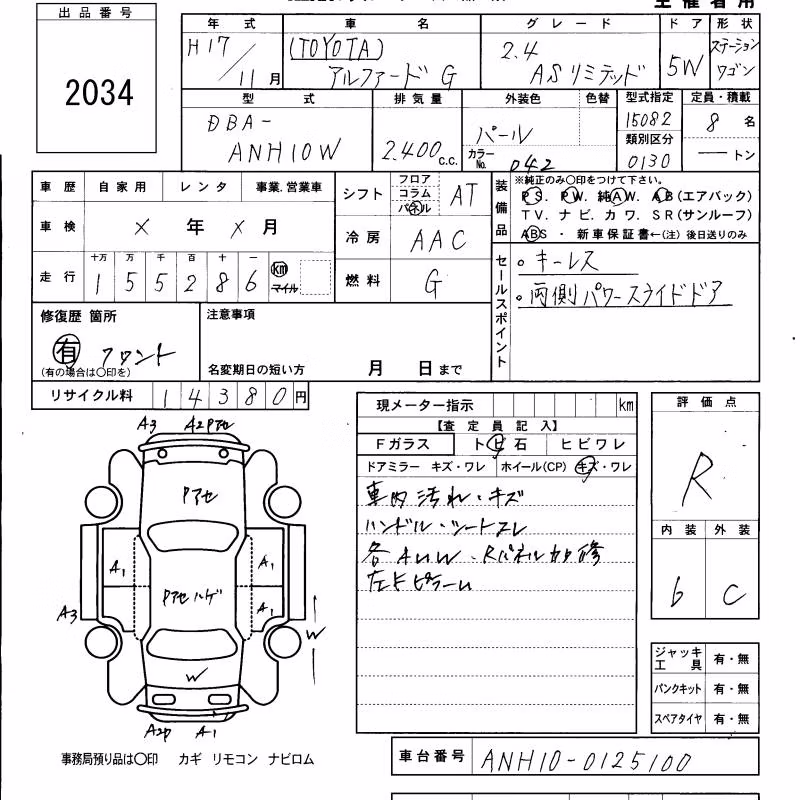 出品番号
2034
年式 車名 グレード ドア 形状
H17/11月 (TOYOTA) アルファード G 2.4 ASリミテッド 5W ステーションワゴン
型式 排気量 外装色 色替 型式指定 定員・積載
DBA-ANH10W 2.400c.c. パール 15082 8名
カラーNo. 042 類別区分 0130 ートン
車歴 自家用 レンタ 事業.営業車
車検 × 年 × 月
走行 十万 万 千 百 十 一
1 5 5 2 8 6 km マイル
シフト フロア コラム パネル AT
冷房 AAC
燃料 G
装備品 ※純正のみ○印をつけて下さい。
PS. PW. 純AW. AB(エアバック)
TV. ナビ. カワ. SR(サンルーフ)
ABS ・ 新車保証書←(注)後日送りのみ
セールスポイント
。キーレス
。両側パワースライドドア
修復歴 箇所
有 フロント
(有の場合は○印を)
注意事項
名変期日の短い方 月 日まで
リサイクル料 1 4 3 8 0 円
現メーター指示 km
【査定員記入】
Fガラス トビ石 ヒビワレ
ドアミラー キズ・ワレ ホイール(CP) キズ・ワレ
車内汚れ・キズ
ハンドル・シートスレ
評価点
R
内装 外装
6 C
A3 A2
Pアセ
A1 A1
Pアセハゲ
A1
A3 W
W
A2 A1
ジャッキ工具 有・無
パンクキット 有・無
スペアタイヤ 有・無
事務局預り品は○印 カギ リモコン ナビロム
車台番号 ANH10-0125100